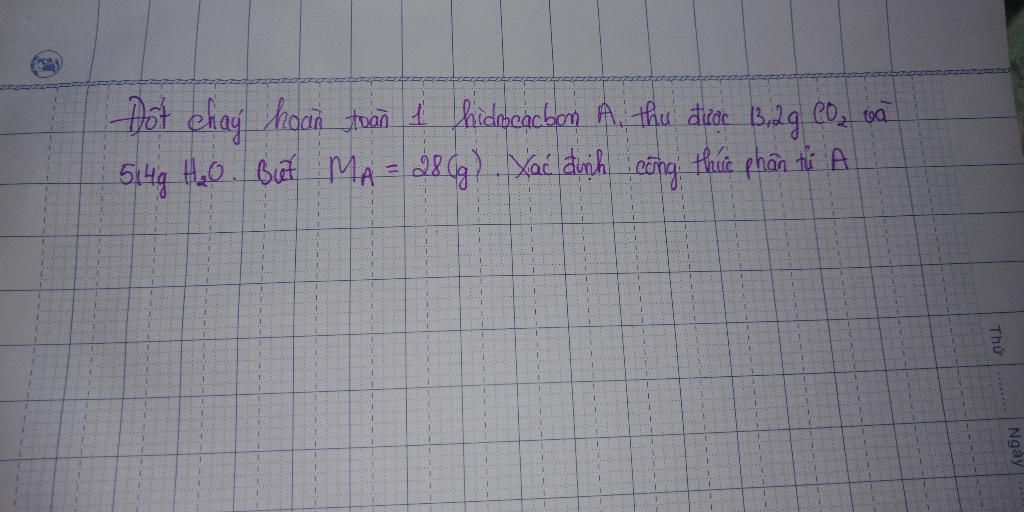 Đốt cháy hoàn toàn 1 hidrocacbon A. thu được 13,2g CO₂ và
5,4g H₂O. Biết M_A = 28(g). Xác định công thức phân tử A
Thứ ........
Ngày ...